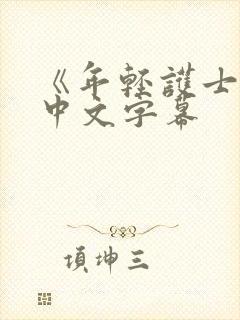 《年輕護士
中文字幕
項坤三